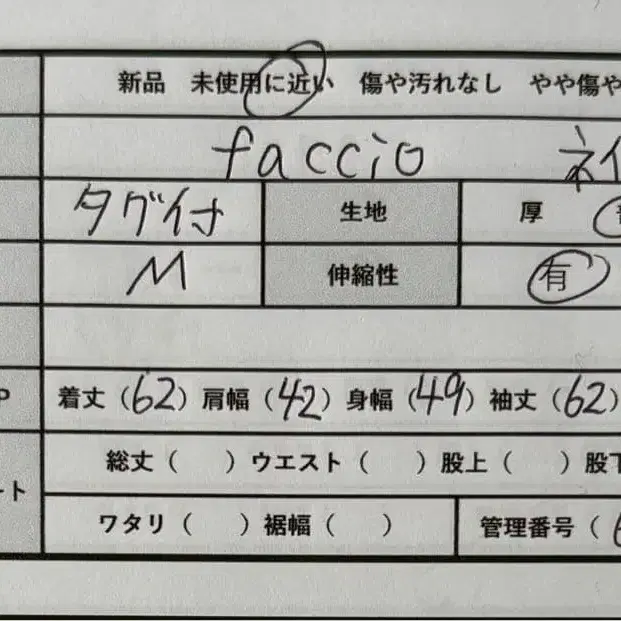 新品 未使用に近い 傷や汚れなし やや傷や
faccio ネイ
タグ付 生地 厚
M 伸縮性 有
着丈（62）肩幅（42）身幅（49）袖丈（62）
総丈（ ）ウエスト（ ）股上（ ）股下
ート
ワタリ（ ）裾幅（ ） 管理番号（